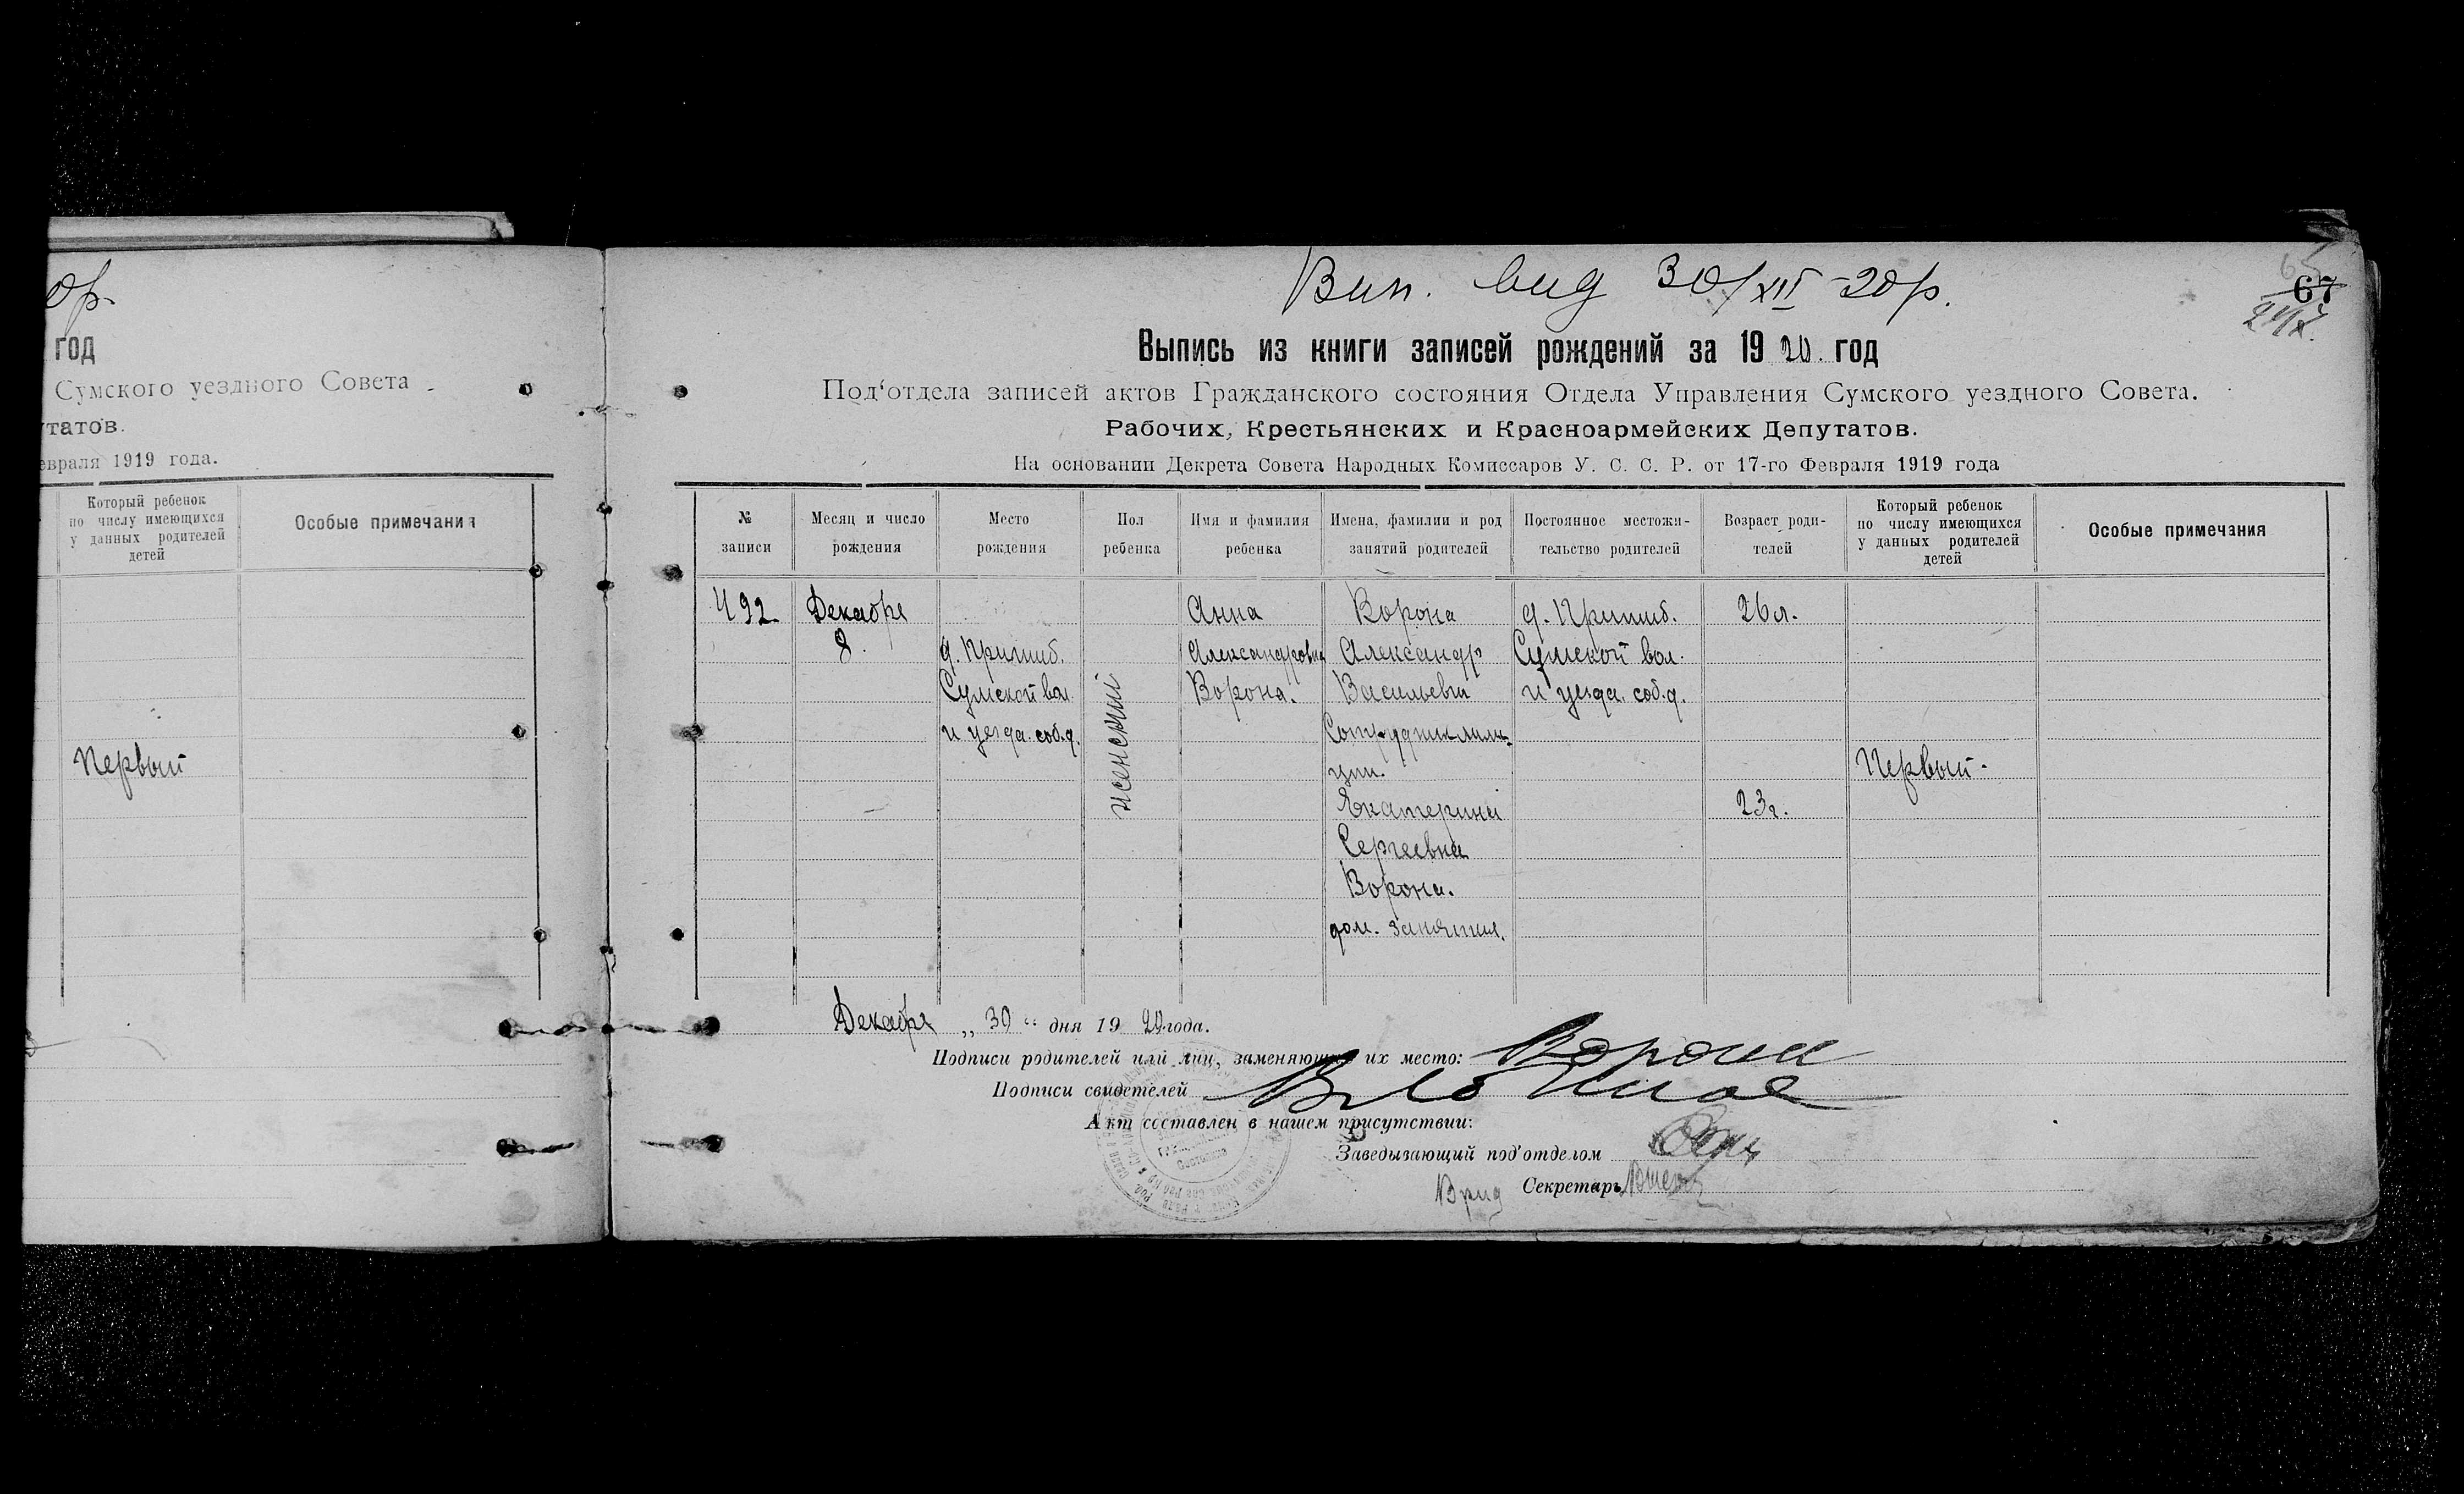 год
Сумского уездного Совета
татов.
евраля 1919 года.
Который ребенок
по числу имеющихся
у данных родителей
детей
Особые примечания
Первый
Вип. вид 30/XII-20р.
67
Выпись из книги записей рождений за 1920. год
Под‘отдела записей актов Гражданского состояния Отдела Управления Сумского уездного Совета.
Рабочих, Крестьянских и Красноармейских Депутатов.
На основании Декрета Совета Народных Комиссаров У. С. С. Р. от 17-го Февраля 1919 года
№
записи
Месяц и число
рождения
Место
рождения
Пол
ребенка
Имя и фамилия
ребенка
Имена, фамилии и род
занятий родителей
Постоянное местожи-
тельство родителей
Возраст роди-
телей
Который ребенок
по числу имеющихся
у данных родителей
детей
Особые примечания
492.
Декабря
8.
д. Пришиб.
Сумской вол.
и уезда. соб.д.
женский
Анна
Александровна
Ворона.
Ворона
Александр
Васильевич
Сотрудник мили-
ции.
Екатерина
Сергеевна
Ворона.
дом. занятия.
д. Пришиб.
Сумской вол.
и уезда. соб.д.
26 л.
23 г.
Первый.
Декабря „ 30 “ дня 1920 года.
Подписи родителей или лиц, заменяющих их место: Ворона
Подписи свидетелей
Акт составлен в нашем присутствии:
Заведывающий под'отделом
Врид Секретарь